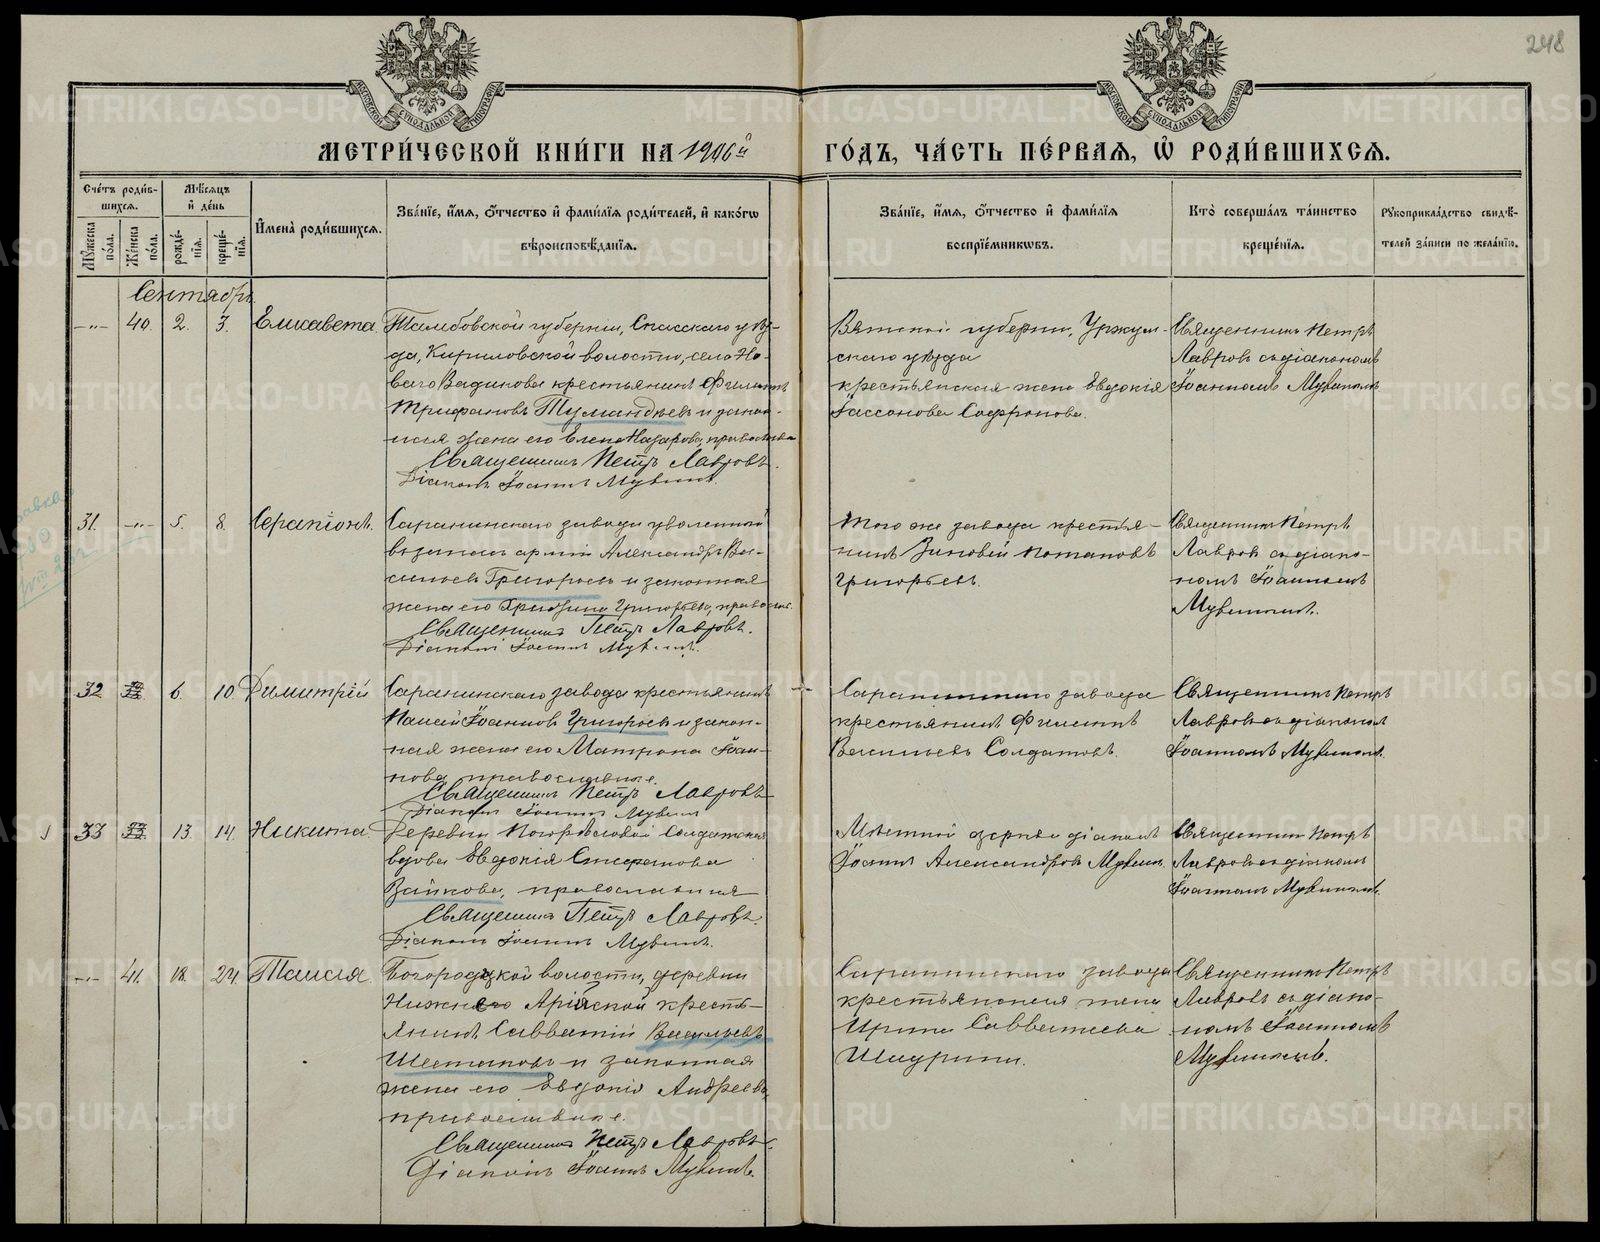 248
МОСКОВСКОЙ СѴНОДАЛЬНОЙ ТИПОГРАФІИ
МОСКОВСКОЙ СѴНОДАЛЬНОЙ ТИПОГРАФІИ
МЕТРИ́ЧЕСКОЙ КНИ́ГИ НА 1906й ГО́ДЪ, ЧА́СТЬ ПЕ́РВАЯ, Ѡ РОДИ́ВШИХСЯ.
Сче́тъ роди́вшихся.
Мꙋжеска по́ла.
Же́нска по́ла.
Мѣ́сяцъ и҆ де́нь
рожде́нїя.
креще́нїя.
И҆мена̀ роди́вшихся.
Зва́нїе, и҆́мя, ѻ҆́тчество и҆ фами́лїя роди́телей, и҆ како́гѡ вѣроисповѣ́данїя.
Зва́нїе, и҆́мя, ѻ҆́тчество и҆ фами́лїя воспрїе́мникѡвъ.
Кто̀ соверша́лъ та́инство креще́нїя.
Рꙋкоприкла́дство свидѣ́телей за́писи по жела́нїю.
Сентябрь.
-"- 40. 2. 3. Елисавета.
Тамбовской губерніи, Спасскаго уѣз-
да, Кириловской волости, села Но-
ваго Вадикова крестьянинъ Филиппъ
Трифановъ Туманджевъ и закон-
ная жена его Елена Назарова, православн
Священникъ Петръ Лавровъ.
Діаконъ Іоаннъ Мувинъ.
Вятской губерніи, Уржум-
скаго уѣзда
крестьянская жена Евдокія
Сафронова.
Священникъ Петръ
Лавровъ съ діакономъ
Іоанномъ
31. -"- 5. 8. Серапіонъ.
Саранинскаго завода уволенный
въ запасъ арміи Александръ Ва-
сильевъ Григорьевъ и законная
жена его Григорьева, правосл.
Священникъ Петръ Лавровъ.
Діаконъ Іоаннъ Мувинъ.
Того же завода крестья-
нинъ Зиновій Потаповъ
Григорьевъ.
Священникъ Петръ
Лавровъ съ діако-
номъ Іоанномъ
32 6. 10 Димитрій
Саранинскаго завода крестьянинъ
Паисій Іоанновъ Григорьевъ и закон-
ная жена его Матрона Іоан-
нова православные.
Священникъ Петръ Лавровъ
Діаконъ Іоаннъ Мувинъ
Саранинскаго завода
крестьянинъ Филиппъ
Васильевъ Солдатовъ.
Священникъ Петръ
Лавровъ съ діаконом
Іоанномъ
33 13. 14. Никита.
Деревни Солдатская
вдова Евдокія Стефанова
Зайкова, православная
Священникъ Петръ Лавровъ.
Діаконъ Іоаннъ Мувинъ.
Мѣстной церкви діаконъ
Іоаннъ Александровъ Мувинъ.
Священникъ Петръ
Лавровъ съ діаконом
Іоанномъ
-"- 41. 18. 24. Таисія.
Богородской волости, деревни
Нижнего Арійской кресть-
янинъ Савватій Васильевъ
Шестаковъ и законная
жена его Евдокія Андреева
православные.
Священникъ Петръ Лавровъ
Діаконъ Іоаннъ Мувинъ.
Саранинскаго завода
крестьянская жена
Ирина Савватеева
Шаурина.
Священникъ Петръ
Лавровъ съ діако-
номъ Іоанномъ
METRIKI.GASO-URAL.RU